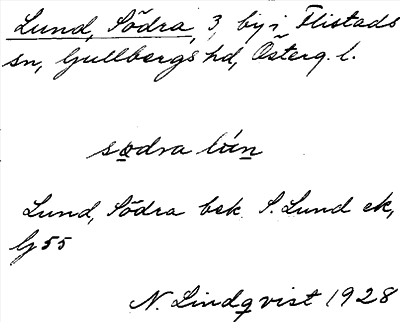 Lund, Södra, 3, by i Flistads
sn, Gullbergs hd, Österg. l.
sødra lún
Lund, Södra bek. S. Lund ek,
G 55
N. Lindqvist 1928